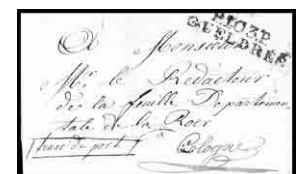 P102P
GUELDRES
A Monsieur
Mr. le Rédacteur
de la feuille Departemen-
tale de la Roer
à
franc de port Cologne